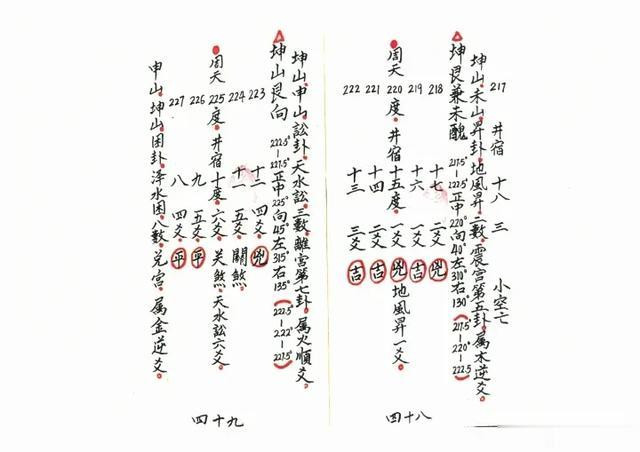 217 井宿 十八 三 小空亡
坤山.未山.昇卦.地風昇.二數.震宮第五卦.属木逆爻.
坤艮兼未醜 217.5°—222.5°正中220°向40°左310°右130°(217.5—220°—222.5)
218 十七 二爻 凶
219 十六 二爻 吉
周天220度.井宿十五度.一爻 凶 地風昇一爻.
221 十四 二爻 吉
222 十三 三爻 吉
四十八
坤山.申山.訟卦.天水訟.三數.離宮第七卦.属火順爻.
坤山艮向 222.5°—227.5°正中225°向45°左315°右135°(222.5°—222°—227.5°)
223 十二 四爻.凶
224 十一 五爻.關煞
周天225度.井宿十度.六爻.关煞.天水訟六爻.
226 九 五爻.平
227 八 四爻.平
申山.坤山.困卦.泽水困.八數.兑宮.属金逆爻.
四十九